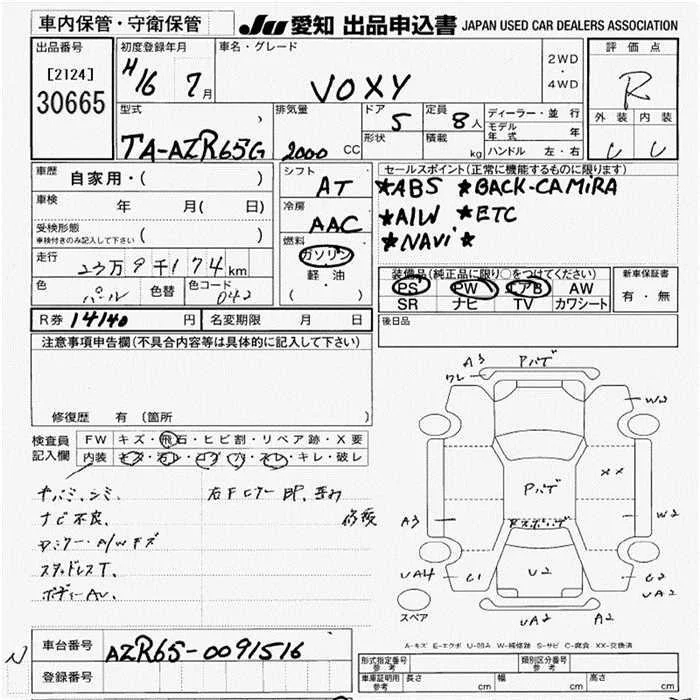 車内保管・守衛保管
JU 愛知 出品申込書 JAPAN USED CAR DEALERS ASSOCIATION
出品番号 初度登録年月 車名・グレード 2WD・4WD 評価点
[2124]
30665
H16 7月 VOXY R
型式 排気量 ドア 5 定員 8人 ディーラー・並行
モデル年式 年
外装 内装
TA-AZR65G 2000 CC 形状 積載 kg ハンドル 左・右
車歴 自家用・( ) シフト AT セールスポイント(正常に機能するものに限ります)
★ABS ★BACK-CAMiRA
車検 年 月( 日) 冷房 AAC
★A/W ★ETC
受検形態 ( )
車検付きのみ記入して下さい
★NAVi★
燃料 ガソリン
軽油
( )
走行 9千174km
装備品(純正品に限り○をつけてください) 新車保証書
PS PW エアB AW 有・無
SR ナビ TV カワシート
色 パール 色替 色コード 042
R券 14140円 名変期限 月 日 後日品
注意事項申告欄(不具合内容等は具体的に記入して下さい)
修復歴 有 (箇所 )
検査員記入欄
FW キズ・飛石・ヒビ割・リペア跡・X要
内装 キズ・汚レ・コゲ・穴・スレ・キレ・破レ
ナビ不良、
A3 Pハゲ
ワレ
W2
Pハゲ
XX
A3
W2
UA4 C1 U2 C2
UA2
スペア UA2 A2
A-キズ E-エクボ U-凹み W-補修跡 S-サビ C-腐食 XX-交換済
車台番号 AZR65-0091516
登録番号
型式指定番号 参考 類別区分番号 参考
車庫証明用 参考 長さ cm 幅 cm 高さ cm